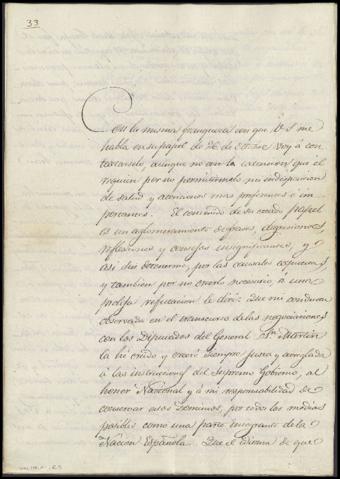 33
Con la misma franqueza con que V.S. me
habla en su papel de 26 de Octubre voy á con
textarselo, aunque no con la extension que el
requiere por no permitirmelo mi indisposicion
de salud y atenciones mas preferentes é im
portantes. El contenido de su citado papel
es un aglomeramiento de frases, digresiones,
reflexiones y consejos insignificantes, y
asi sin detenerme, por las causales expuestas
y tambien por no creerlo necesario, á una
prolija refutacion le diré: Que mi conducta
observada en el transcurso de las negociaciones
con los Diputados del General Sn. Martin
la hé creido y creeré siempre justa y arreglada
á las instrucciones del Supremo Gobierno, al
honor Nacional y á mi responsabilidad de
conservar estos Dominios, por todos los medios
posibles como una parte integrante de la
Nacion Española. Que el Idioma de que